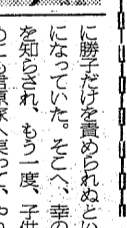 に勝子だけを責められぬとい
になっていた。そこへ、幸の
を知らされ、もう一度、子供